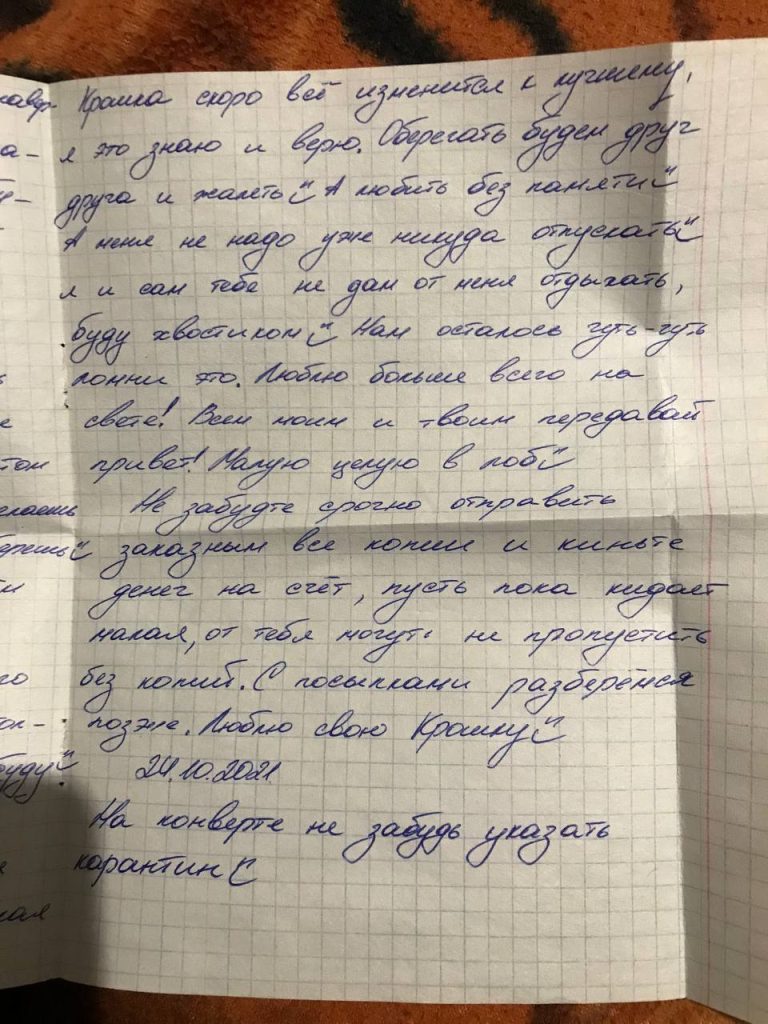 Крошка скоро всё изменится к лучшему,
я это знаю и верю. Оберегать будем друг
друга и жалеть А любить без памяти
А меня не надо уже никуда отпускать
я и сам тебе не дам от меня отдыхать,
буду хвостиком Нам осталось чуть-чуть
помни это. Люблю больше всего на
свете! Всем моим и твоим передавай
привет! Малую целую в лоб
Не забудте срочно отправить
заказным все копии и киньте
денег на счёт, пусть пока кидает
малая, от тебя могут не пропустить
без копий. С посылками разберёмся
позже. Люблю свою Крошку
24.10.2021
На конверте не забудь указать
карантин